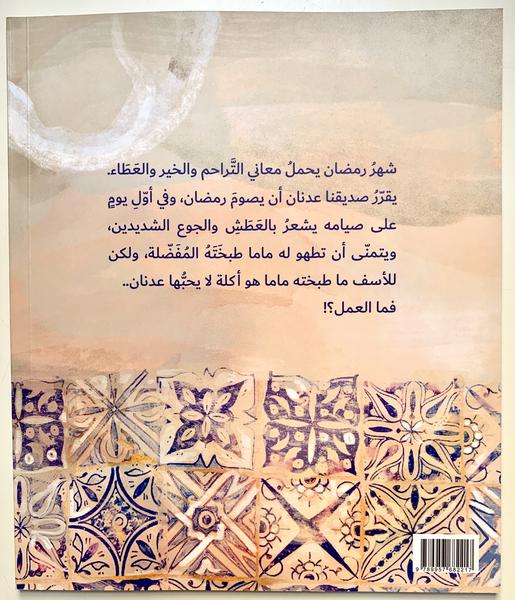 شهرُ رمضان يحملُ معاني التَّراحم والخير والعَطَاء.
يقرّرُ صديقنا عدنان أن يصومَ رمضان، وفي أوّلِ يومٍ
على صيامه يشعرُ بالعَطَشِ والجوع الشديدين،
ويتمنّى أن تطهو له ماما طبخَتَهُ المُفَضّلة، ولكن
للأسف ما طبخته ماما هو أكلة لا يحبُّها عدنان..
فما العمل؟!
9 789957 682217